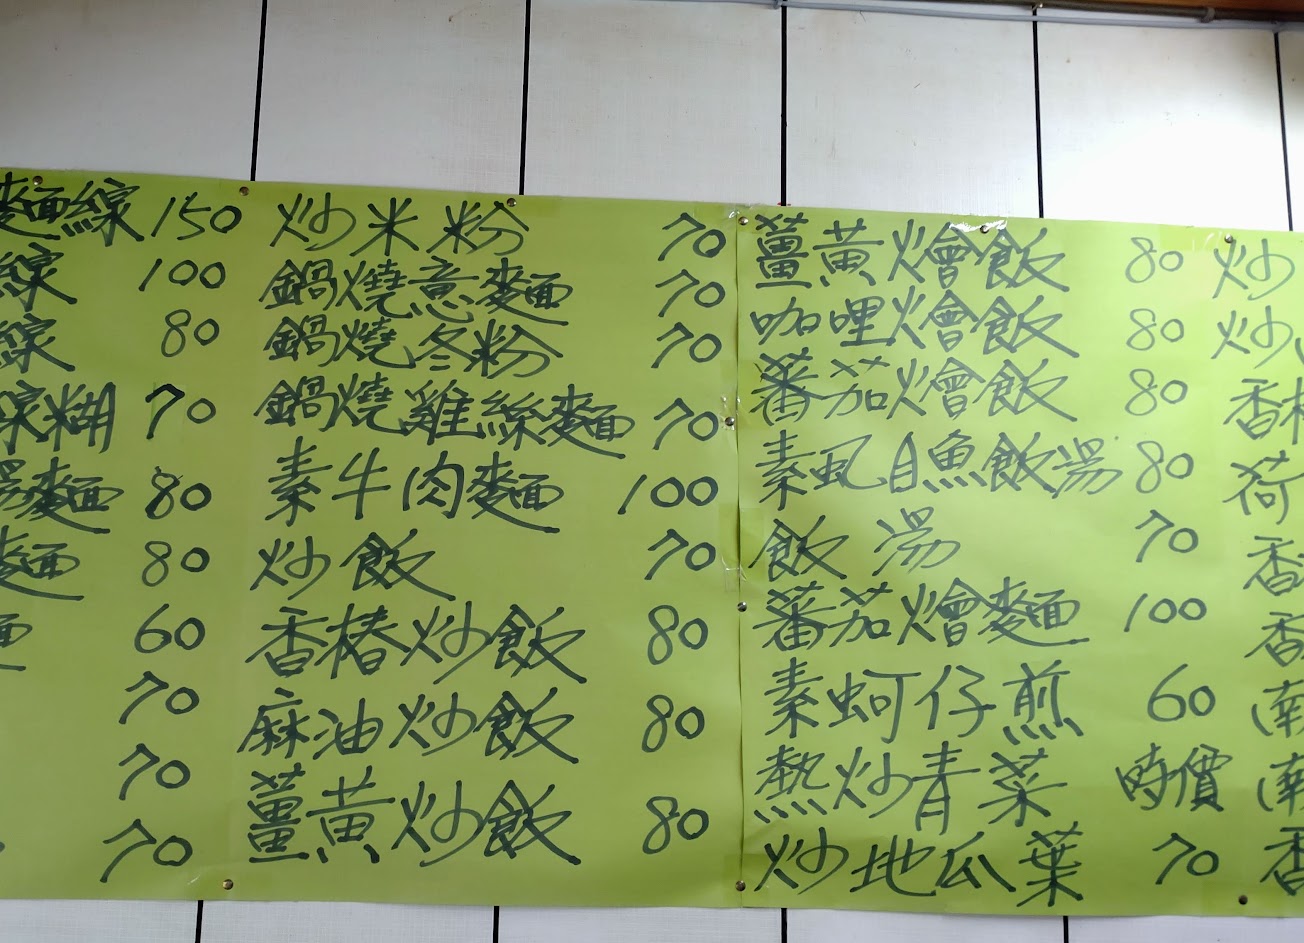 麵線 150
線 100
線 80
線糊 70
湯麵 80
麵 80
麵 60
70
70
70
炒米粉 70
鍋燒意麵 70
鍋燒冬粉 70
鍋燒雞絲麵 70
素牛肉麵 100
炒飯 70
香椿炒飯 80
麻油炒飯 80
薑黃炒飯 80
薑黃燴飯 80
咖哩燴飯 80
蕃茄燴飯 80
素虱目魚飯湯 80
飯湯 70
蕃茄燴麵 100
素蚵仔煎 60
熱炒青菜 時價
炒地瓜葉 70
炒
炒
香椿
荷
香
香
(南
(南
香